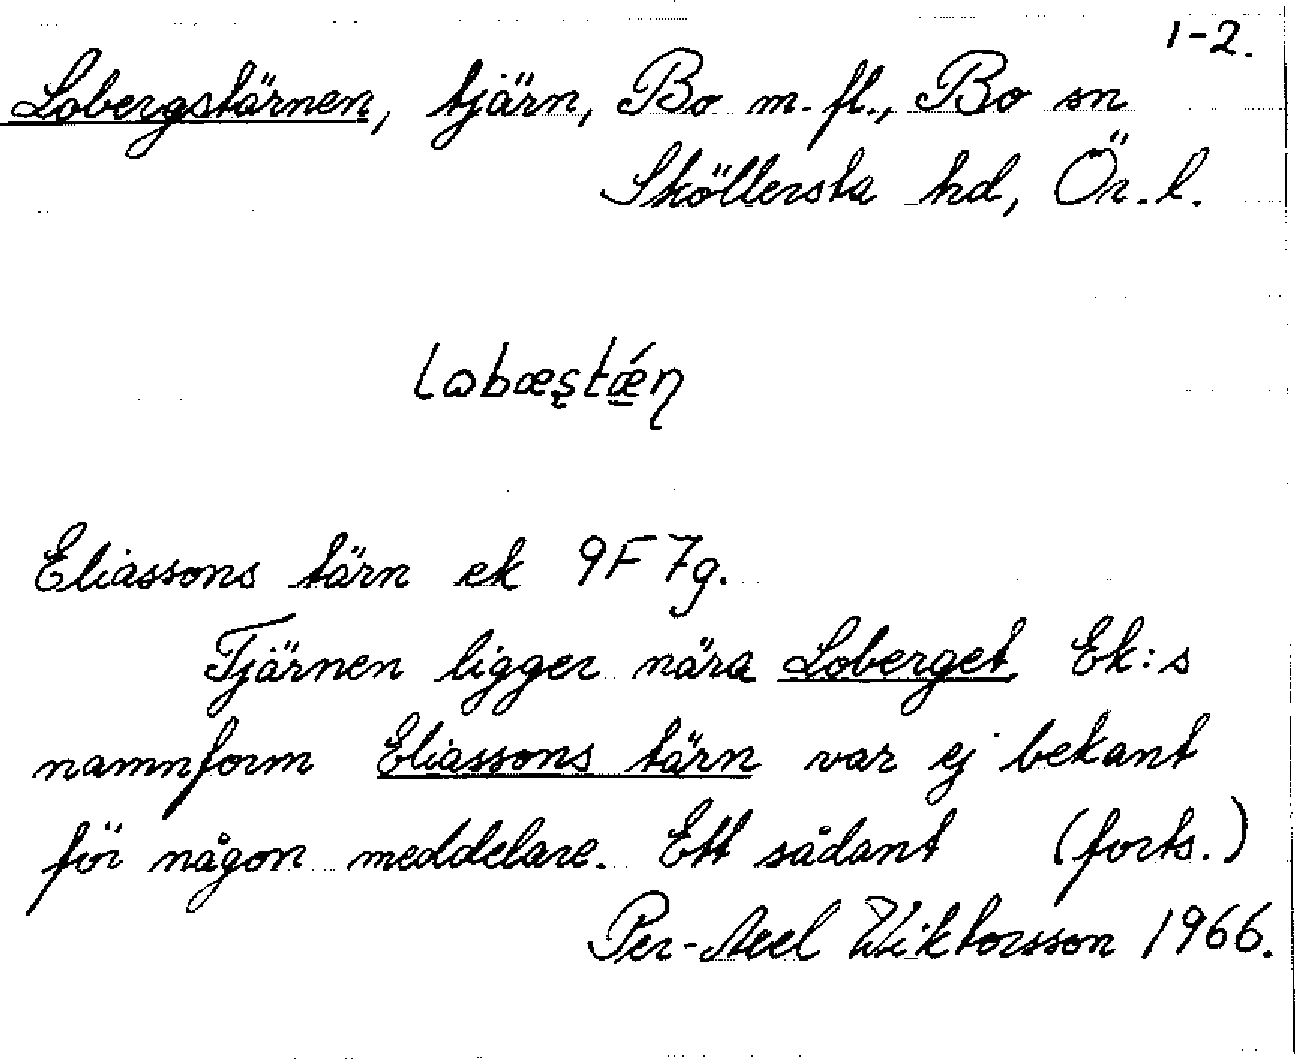 1-2.
Lobergstärnen, tjärn, Bo m.fl., Bo sn
Sköllersta hd, Ör.l.
Eliassons tärn ek 9F 7g.
Tjärnen ligger nära Loberget. Ek:s
namnform Eliassons tärn var ej bekant
för någon meddelare. Ett sådant (forts.)
Per-Axel Wiktorsson 1966.